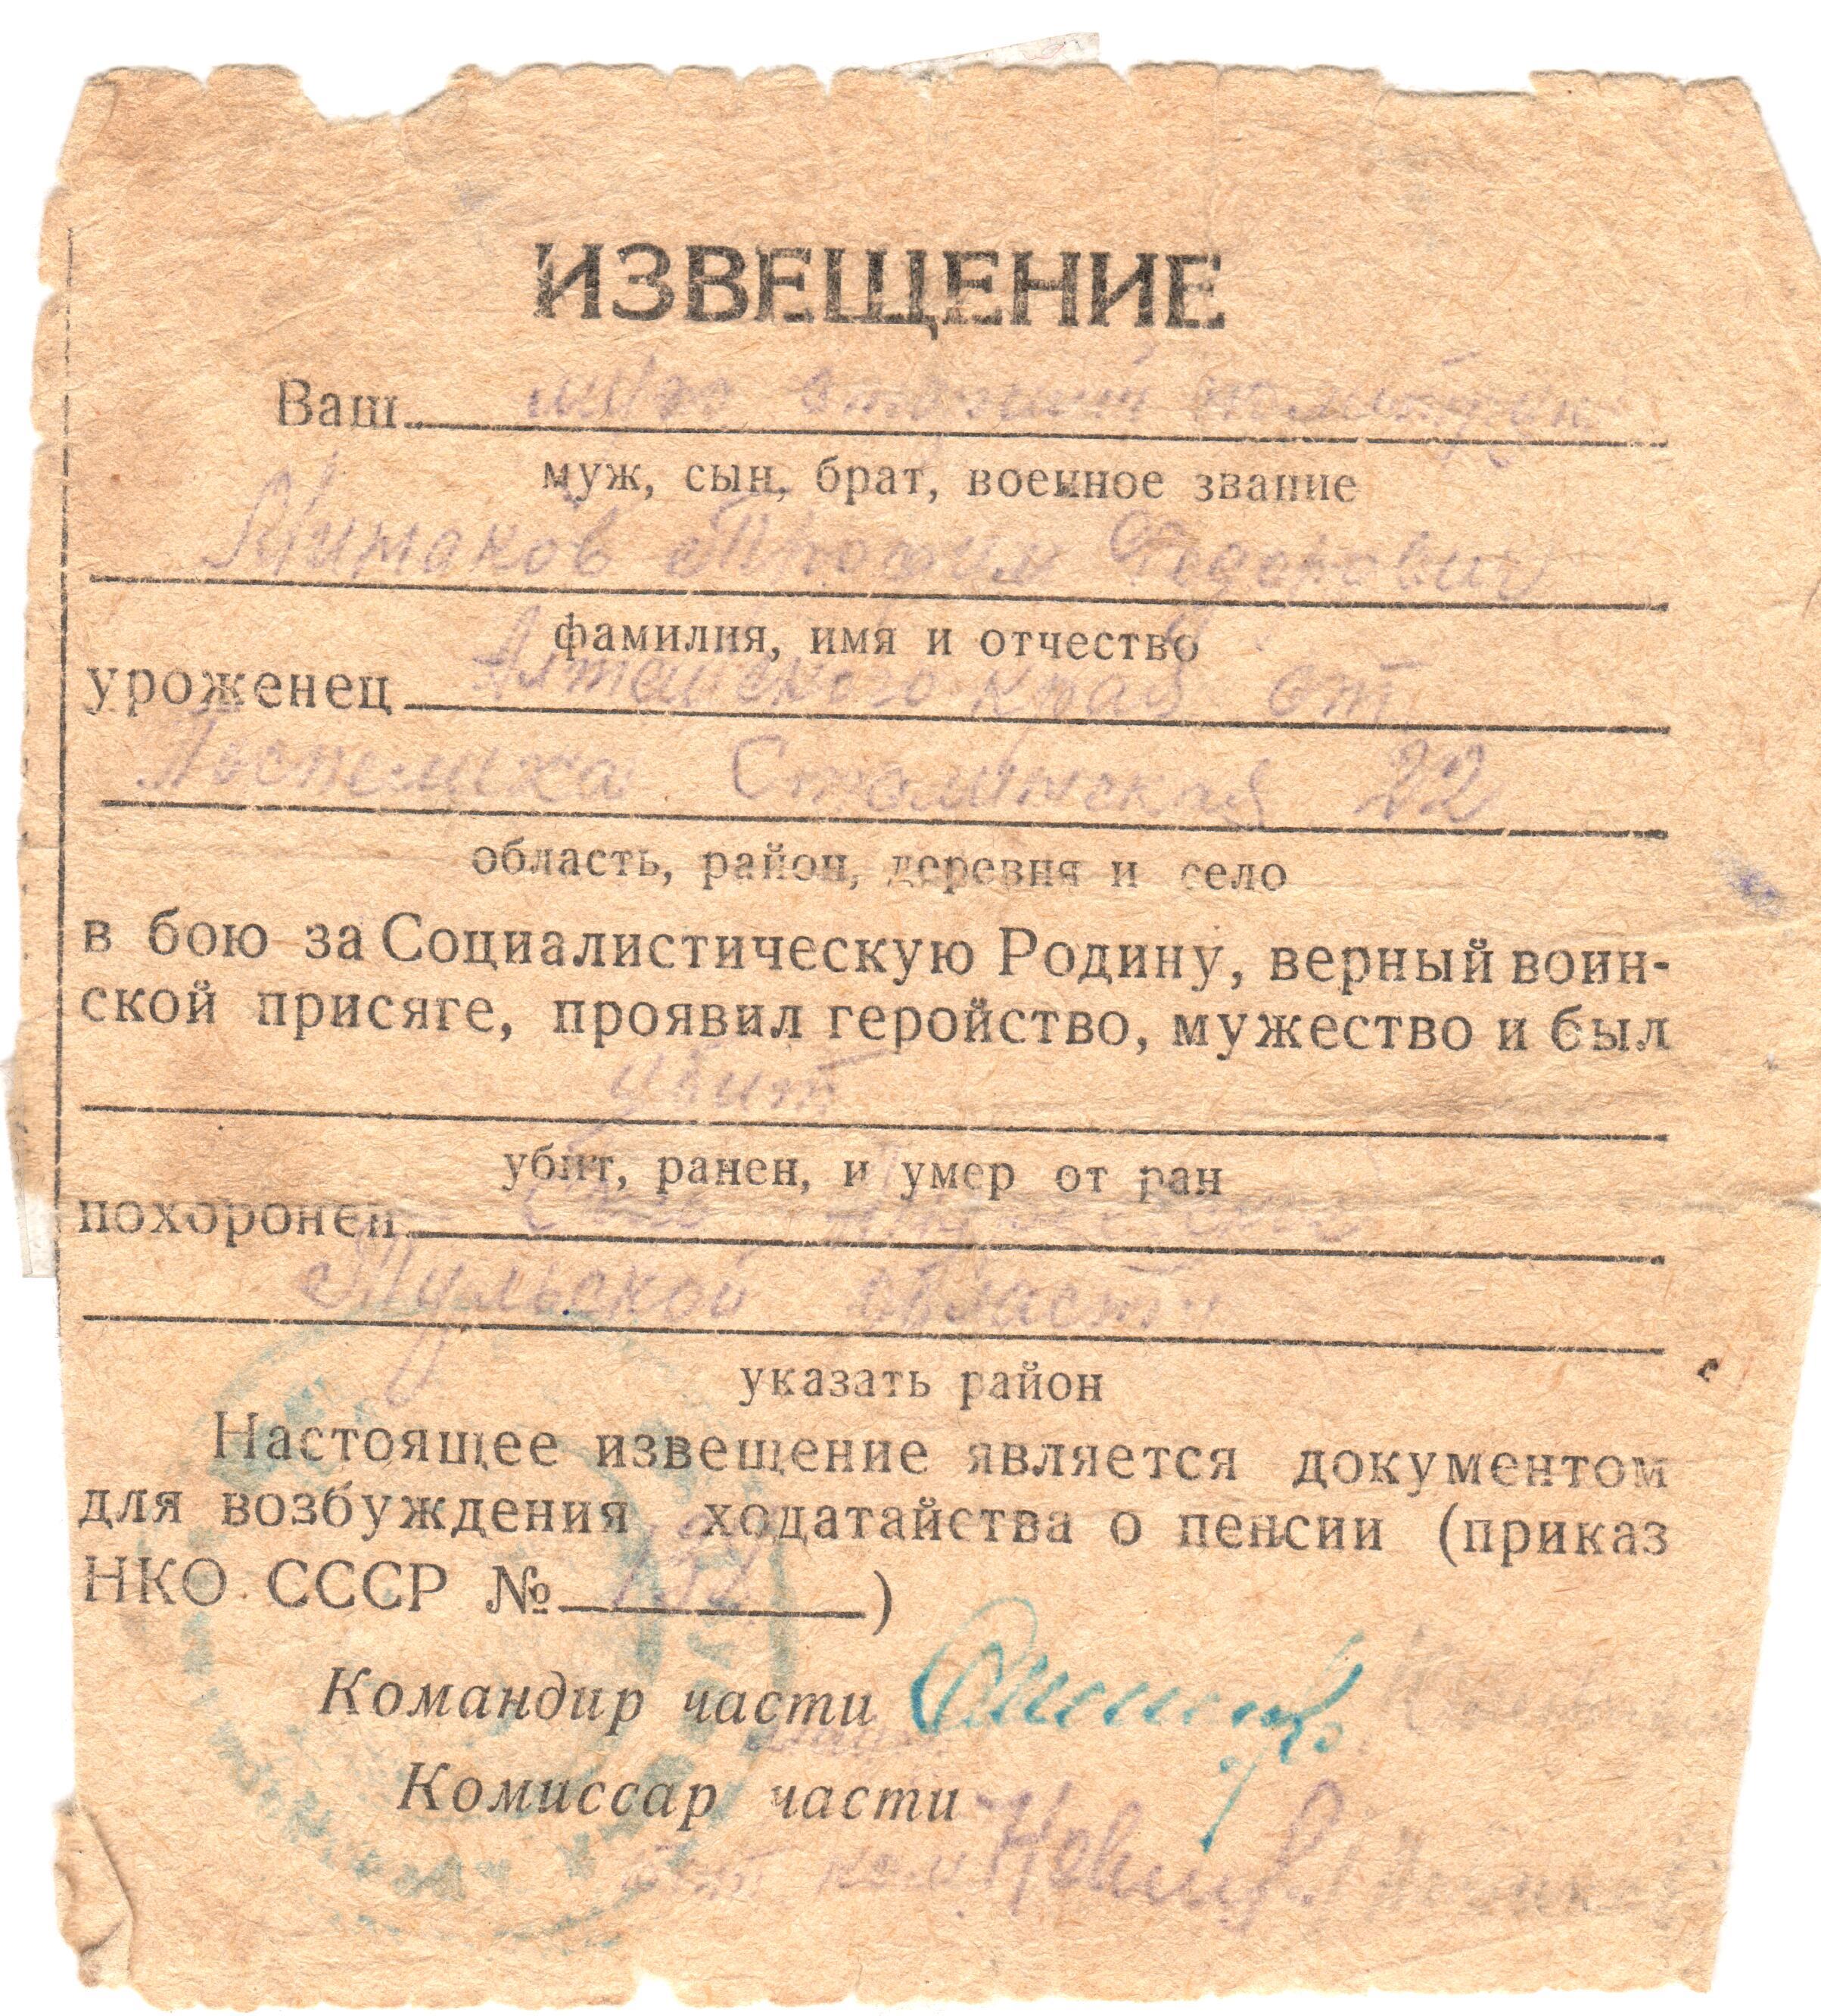 ИЗВЕЩЕНИЕ
Ваш муж старший политрук
муж, сын, брат, военное звание
Трофим Федорович
фамилия, имя и отчество
уроженец Алтайского края ст
Поспелиха Сталинская 22
область, район, деревня и село
в бою за Социалистическую Родину, верный воин-
ской присяге, проявил геройство, мужество и был
убит
убит, ранен, и умер от ран
похоронен
Тульской области
указать район
Настоящее извещение является документом
для возбуждения ходатайства о пенсии (приказ
НКО СССР № )
Командир части
Комиссар части